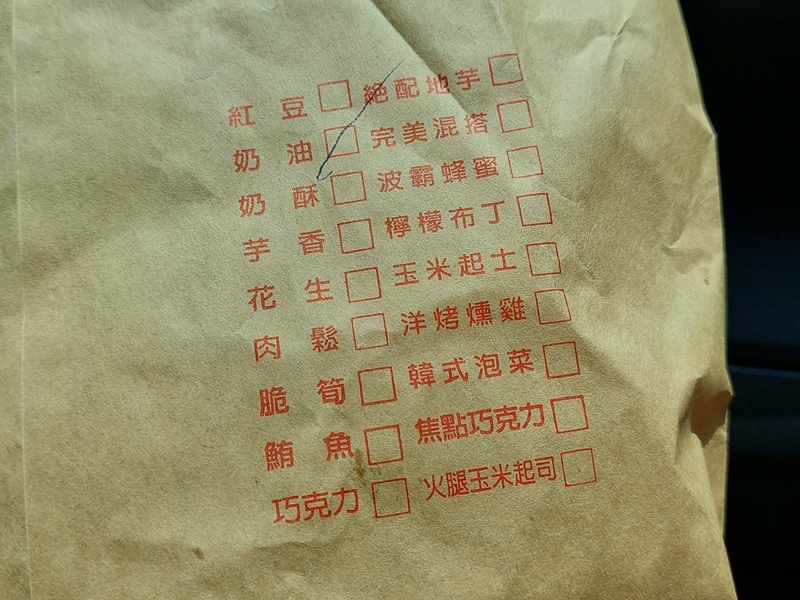 紅豆□ 絕配地芋□
奶油□ 完美混搭□
奶酥□ 波霸蜂蜜□
芋香□ 檸檬布丁□
花生□ 玉米起士□
肉鬆□ 洋烤燻雞□
脆筍□ 韓式泡菜□
鮪魚□ 焦點巧克力□
巧克力□ 火腿玉米起司□